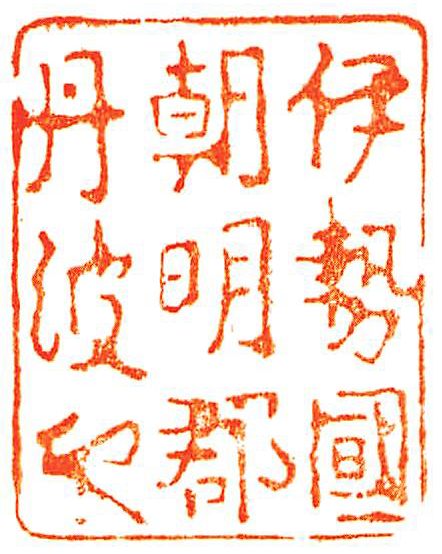 伊勢國
朝明郡
丹波印